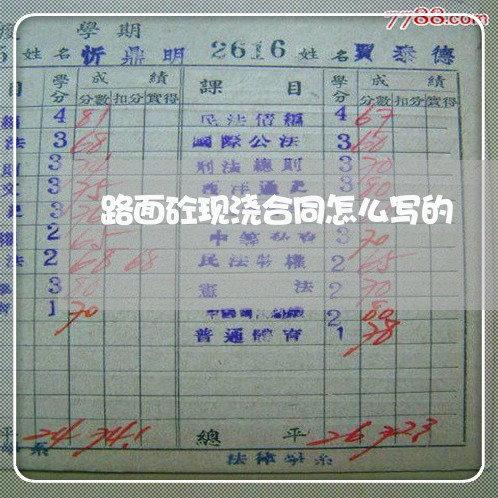 7788.com
學期
姓名 忻鼎明 2616 姓名 賈泰德
目 學分 成績 課目 學分 成績
分數 扣分 實得 分數 扣分 實得
4 81 民法債編 4 67
法 3 68 國際公法 3 60
3 刑法總則 3 70
3 75 西洋通史 3 80
路面砼现浇合同怎么写的
2 65 3 70
法 2 68 68 民法物權 2 65
3 80 憲法 2 70
1 70 2 80
普通體育 1 78
平 24 74.1 總平 26 72.3
系 法律學系